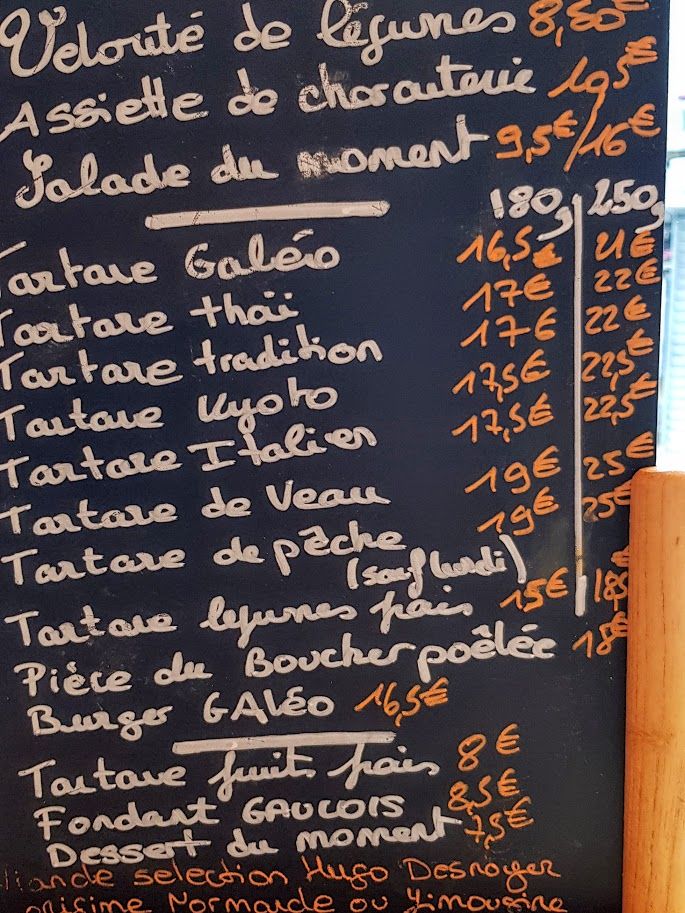 Velouté de légumes 8,50€
Assiette de charcuterie 10,5€
Salade du moment 9,5€/16€
180g 250g
Tartare Galéo 16,5€ 21€
Tartare thaï 17€ 22€
Tartare tradition 17€ 22€
Tartare Kyoto 17,5€ 22,5€
Tartare Italien 17,5€ 22,5€
Tartare de Veau 19€ 25€
Tartare de pêche 19€ 25€
(sauf lundi)
Tartare légumes frais 15€ 18,5€
Pièce du Boucher poêlée 18€
Burger GALéo 16,5€
Tartare fruits frais 8€
Fondant GAULOIS 8,5€
Dessert du moment 7,5€
Viande selection Hugo Desnoyer
origine Normande ou Limousine